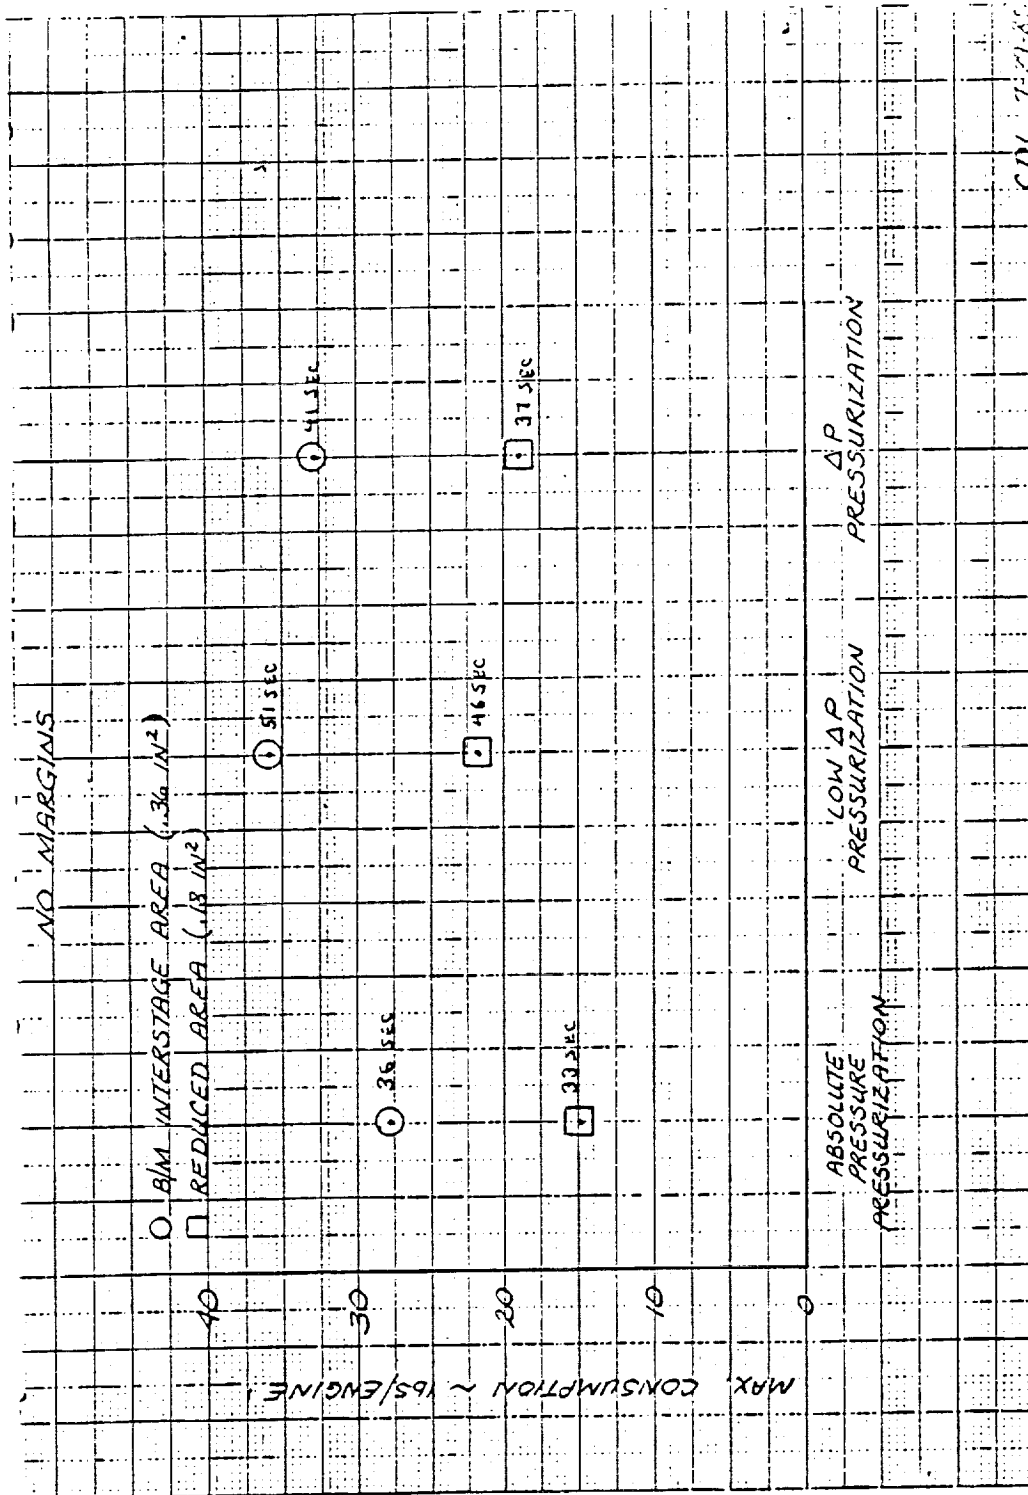 NO MARGINS
B/M INTERSTAGE AREA (.36 IN²)
REDUCED AREA (.18 IN²)
MAX. CONSUMPTION ~ lbs/ENGINE
40
30
20
10
0
36 SEC
33 SEC
51 SEC
46 SEC
41 SEC
37 SEC
ABSOLUTE
PRESSURE
PRESSURIZATION
LOW ΔP
PRESSURIZATION
ΔP
PRESSURIZATION